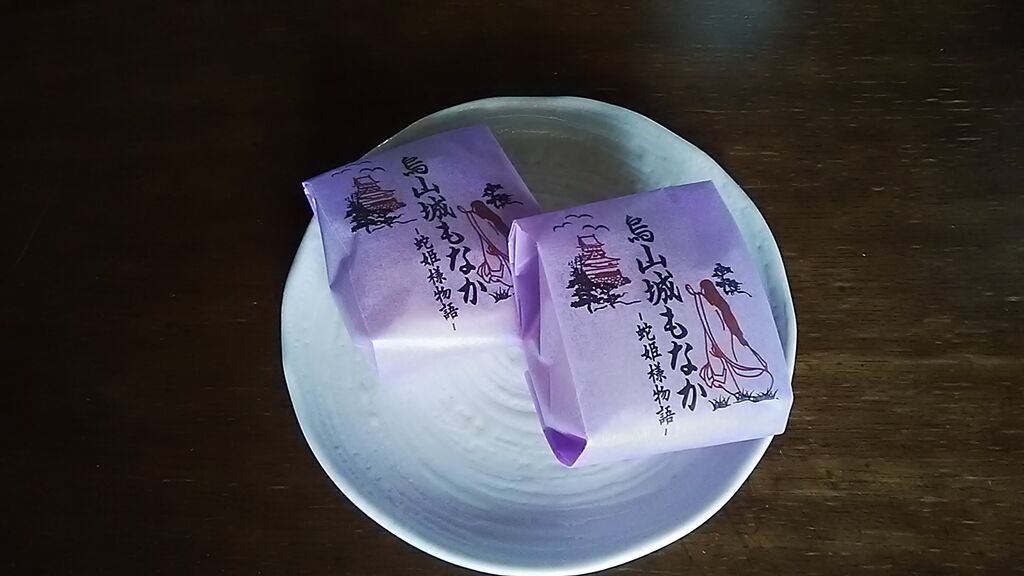 烏山城もなか
-蛇姫様物語-
烏山城もなか
-蛇姫様物語-